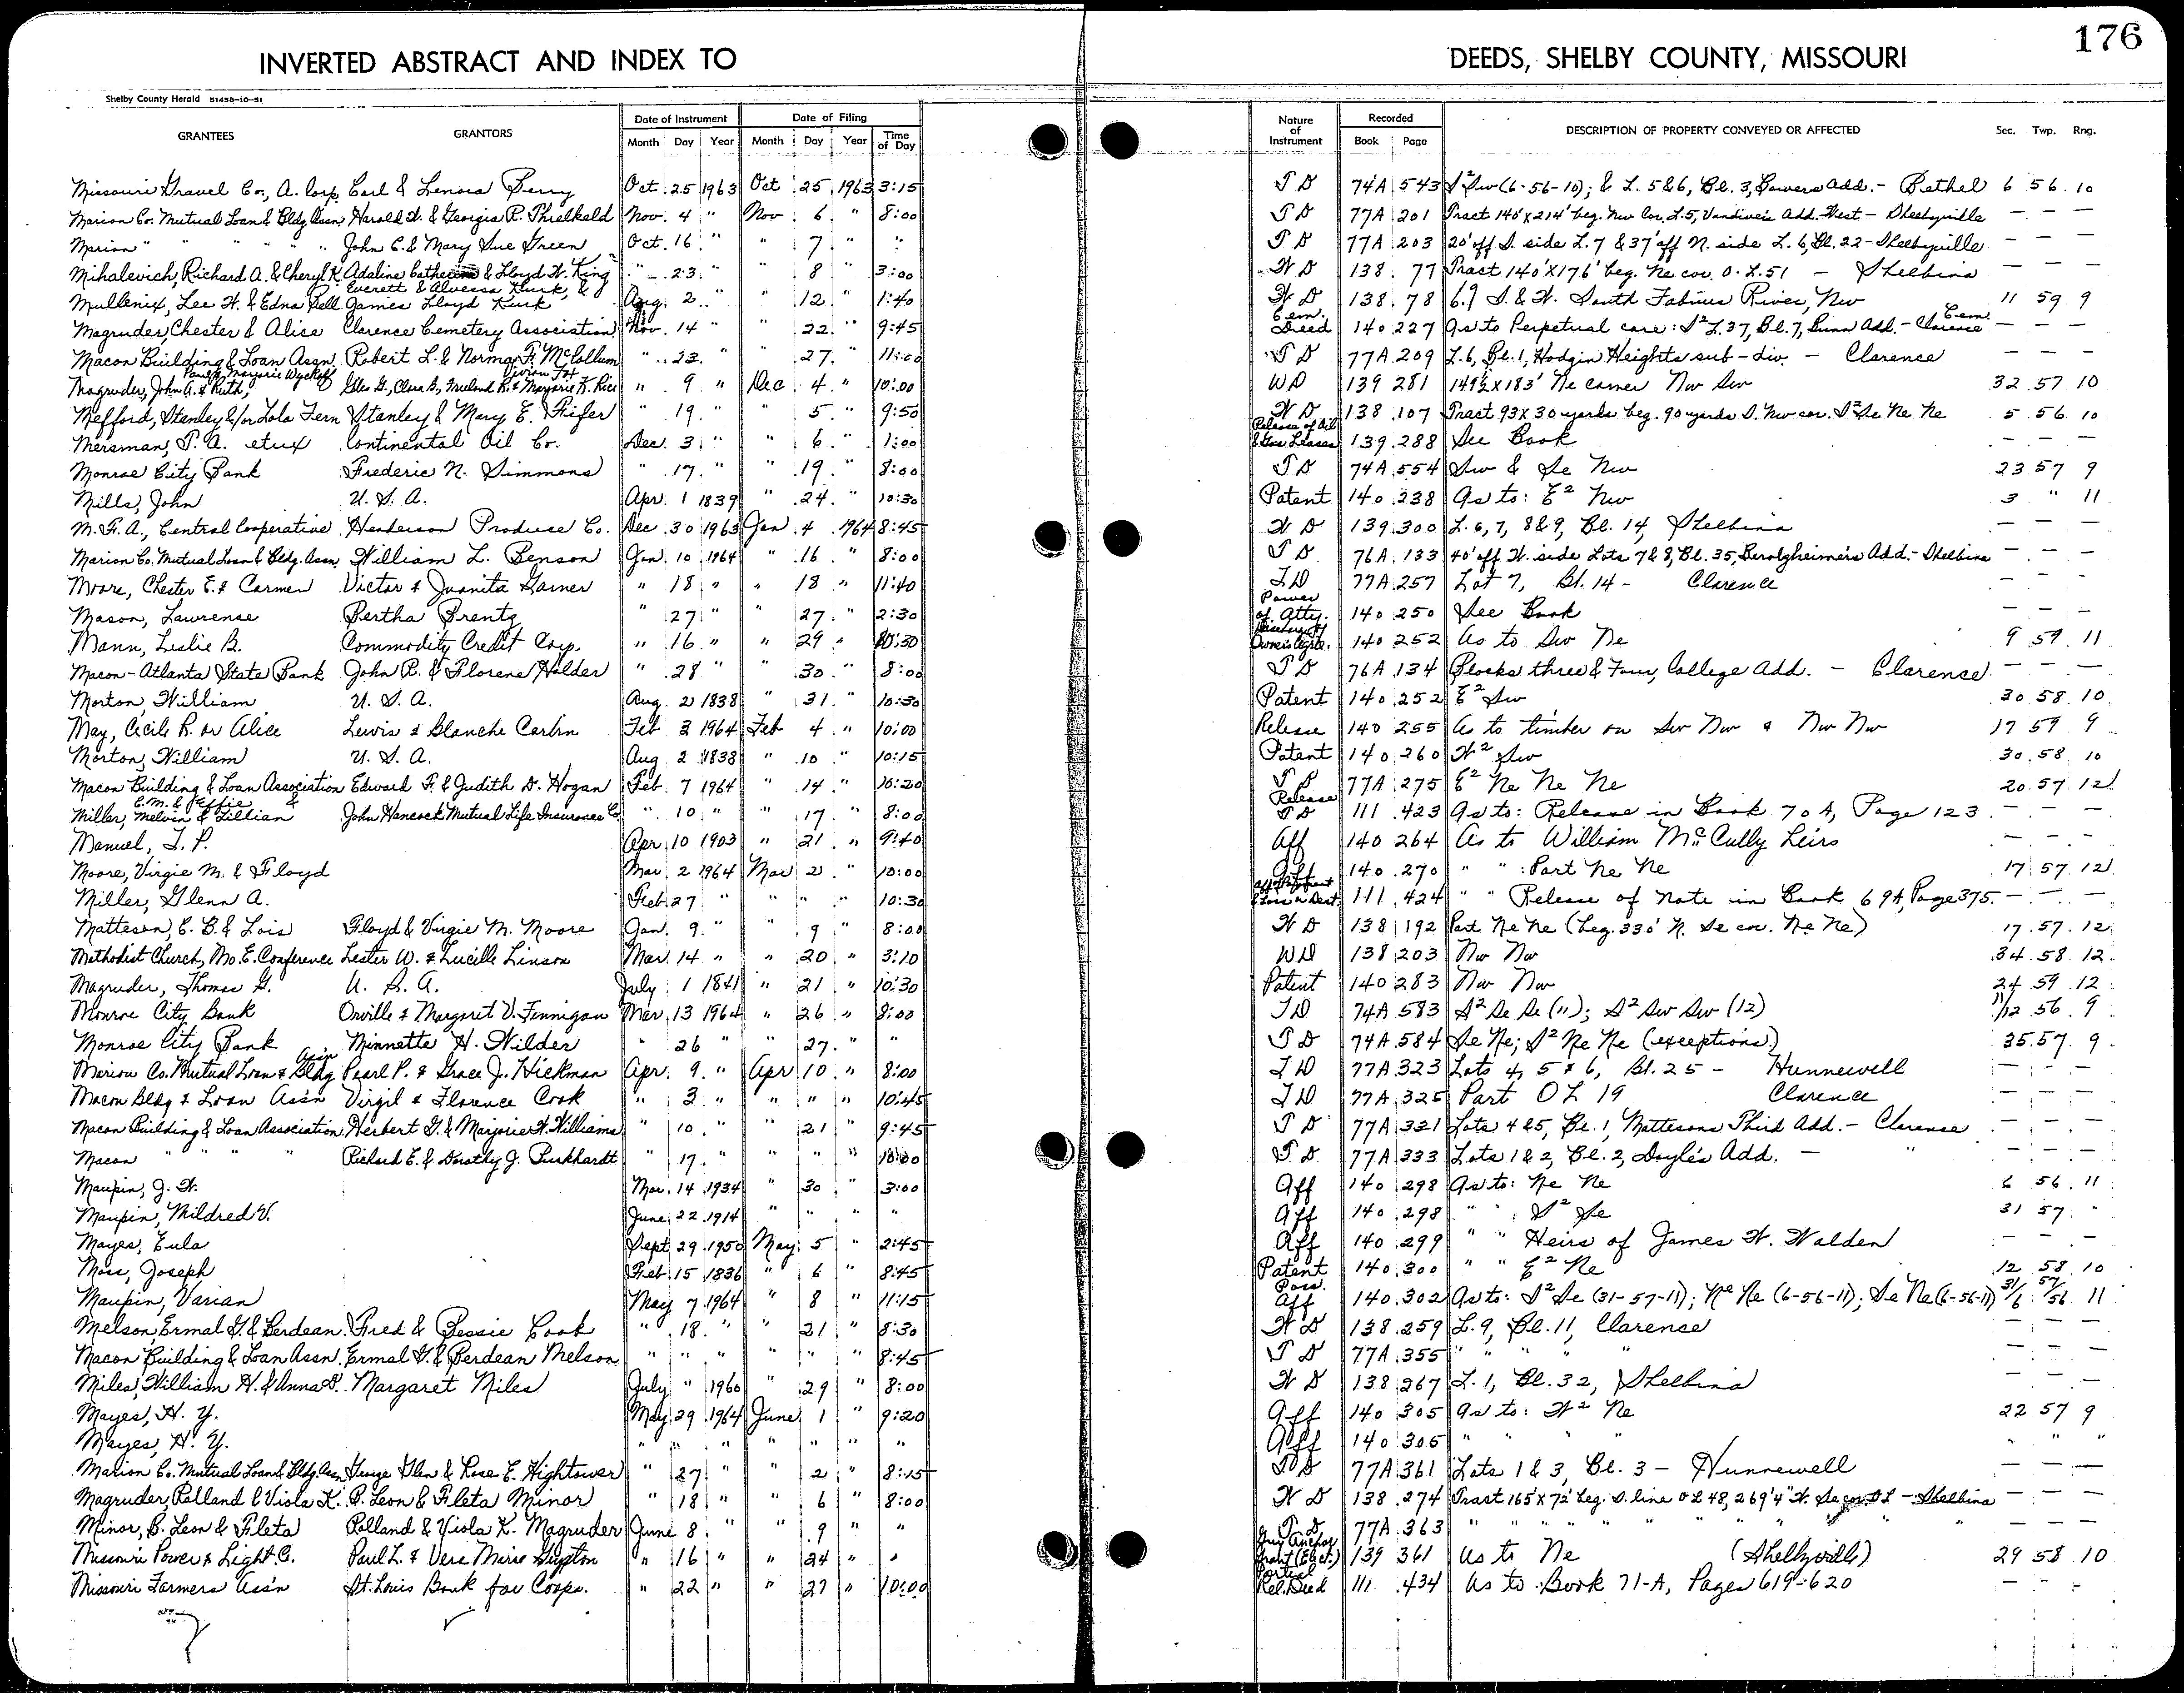 176
INVERTED ABSTRACT AND INDEX TO DEEDS, SHELBY COUNTY, MISSOURI
Shelby County Herald 51458-10-51
GRANTEES GRANTORS Date of Instrument Month Day Year Date of Filing Month Day Year Time of Day Nature of Instrument Recorded Book Page DESCRIPTION OF PROPERTY CONVEYED OR AFFECTED Sec. Twp. Rng.
Missouri Gravel Co., A. Corp. Earl & Lenora Perry Oct 25 1963 Oct 25 1963 3:15 T D 74A 543 S² Sw (6-56-10); & L. 5&6, Bl. 3, Bowers Add. - Bethel 6 56 10
Marion Co. Mutual Loan & Bldg Assn. Harold W. & Georgia R. Threlkeld Nov. 4 " Nov. 6 " 8:00 T D 77A 201 Tract 140'X214' beg. Nw Cor. L.5, Vandive's Add. West - Shelbyville — — —
Marion " " " " " John E. & Mary Sue Green Oct. 16 " " 7 " " T D 77A 203 20' off S. side L. 7 & 37' off N. side L. 6, Bl. 22 - Shelbyville — — —
Mihalevich, Richard A. & Cheryl K. Adaline & Lloyd W. King " 23 " " 8 " 3:00 W D 138 77 Tract 140'X176' beg. Ne cor. O. L. 51 - Shelbina — — —
Mullenix, Lee W. & Edna Bell Everett & Alvessa Kirk, & James Lloyd Kirk Aug. 2 " " 12 " 1:40 W D 138 78 6.9 S. & W. South Fabius River, Nw 11 59 9
Magruder, Chester & Alice Clarence Cemetery Association Nov. 14 " " 22 " 9:45 Cem. Deed 140 227 As to Perpetual care: S² L. 37, Bl. 7, Bunn Add. - Clarence Cem. — — —
Macon Building & Loan Assn. Robert L. & Norma F. McCollum " 23 " " 27 " 11:00 T D 77A 209 L. 6, Bl. 1, Hodgin Heights sub-div. - Clarence — — —
Magruder, John A. & Ruth, Paul & Marjorie Wyckoff Giles G., Clara B., Freeland R. & Marjorie K. Rice Vivian Fox " 9 " Dec 4 " 10:00 WD 139 281 149½ X 183' Ne corner Nw Sw 32 57 10
Mefford, Stanley &/or Lola Fern Stanley & Mary E. Fifer " 19 " " 5 " 9:50 W D 138 107 Tract 93X30 yards beg. 90 yards S. Nw cor. S² Se Ne Ne 5 56 10
Mersman, T. A. etux Continental Oil Co. Dec. 3 " " 6 " 1:00 Release of Oil & Gas Leases 139 288 See Book — — —
Monroe City Bank Frederic N. Simmons " 17 " " 19 " 8:00 T D 74A 554 Sw & Se Nw 23 57 9
Mills, John U. S. A. Apr. 1 1839 " 24 " 10:30 Patent 140 238 As to: E² Nw 3 " 11
M. F. A., Central Cooperative Henderson Produce Co. Dec 30 1963 Jan. 4 1964 8:45 W D 139 300 L. 6, 7, 8 & 9, Bl. 14, Shelbina — — —
Marion Co. Mutual Loan & Bldg. Assn. William L. Benson Jan. 10 1964 " 16 " 8:00 T D 76A 133 40' off W. side Lots 7 & 8, Bl. 35, Berolzheimer's Add. - Shelbina — — —
Moore, Chester E. & Carmen Victor & Juanita Garner " 18 " " 18 " 11:40 T D 77A 257 Lot 7, Bl. 14 - Clarence — — —
Mason, Lawrence Bertha Brentz " 27 " " 27 " 2:30 Power of Atty. 140 250 See Book — — —
Mann, Leslie B. Commodity Credit Corp. " 16 " " 29 " 10:30 Owner's Agre. 140 252 As to Sw Ne 9 59 11
Macon-Atlanta State Bank John R. & Florene Holder " 28 " " 30 " 8:00 T D 76A 134 Blocks three & Four, College Add. - Clarence — — —
Morton, William U. S. A. Aug. 2 1838 " 31 " 10:30 Patent 140 252 E² Sw 30 58 10
May, Cecile R. or Alice Lewis & Blanche Carbin Feb 3 1964 Feb 4 " 10:00 Release 140 255 As to timber on Sw Nw & Nw Nw 17 59 9
Morton, William U. S. A. Aug 2 1838 " 10 " 10:15 Patent 140 260 W² Sw 30 58 10
Macon Building & Loan Association Edward F. & Judith D. Hogan Feb. 7 1964 " 14 " 10:20 T D 77A 275 E² Ne Ne Ne 20 57 12
Miller, E. M. & Effie & Melvin & Lillian John Hancock Mutual Life Insurance Co. " 10 " " 17 " 8:00 Release T D 111 423 As to: Release in Book 70A, Page 123 — — —
Manuel, L. P. Apr. 10 1903 " 21 " 9:40 Aff 140 264 As to William McCully Heirs — — —
Moore, Virgie M. & Floyd Mar. 2 1964 Mar 2 " 10:00 Aff 140 270 " " : Part Ne Ne 17 57 12
Miller, Glenn A. Feb. 27 " " " " 10:30 111 424 " " Release of Note in Book 69A, Page 375 — — —
Matteson, E. B. & Lois Floyd & Virgie M. Moore Jan. 9 " " 9 " 8:00 W D 138 192 Part Ne Ne (beg. 330' N. Se cor. Ne Ne) 17 57 12
Methodist Church, Mo. E. Conference Lester W. & Lucille Linson Mar. 14 " " 20 " 3:10 WD 138 203 Nw Nw 34 58 12
Magruder, Thomas G. U. S. A. July 1 1841 " 21 " 10:30 Patent 140 283 Nw Nw 24 59 12
Monroe City Bank Orville & Margaret V. Finnigan Mar. 13 1964 " 26 " 8:00 T D 74A 583 S² Se Se (11); S² Sw Sw (12) 11/12 56 9
Monroe City Bank Minnette H. Wilder " 26 " " 27 " " T D 74A 584 Se Ne; S² Ne Ne (exceptions) 35 57 9
Marion Co. Mutual Loan & Bldg Ass'n Pearl P. & Grace J. Hickman Apr. 9 " Apr 10 " 8:00 T D 77A 323 Lots 4, 5 & 6, Bl. 25 - Hunnewell — — —
Macon Bldg & Loan Ass'n Virgil & Florence Cook " 3 " " " " 10:45 T D 77A 325 Part O L 19 Clarence — — —
Macon Building & Loan Association Herbert G. & Marjorie H. Williams " 10 " " 21 " 9:45 T D 77A 321 Lots 4 & 5, Bl. 1, Mattesons Third Add. - Clarence — — —
Macon " " " " Richard E. & Dorothy J. Burkhardt " 17 " " " " 10:00 T. D 77A 333 Lots 1 & 2, Bl. 2, Doyle's Add. - " — — —
Maupin, J. W. Mar. 14 1934 " 30 " 3:00 Aff 140 298 As to: Ne Ne 6 56 11
Maupin, Mildred V. June 22 1914 " " " " Aff 140 298 " " : S² Se 31 57 "
Mayes, Eula Sept 29 1950 May 5 " 2:45 Aff 140 299 " " Heirs of James W. Walden — — —
Moss, Joseph Feb. 15 1836 " 6 " 8:45 Patent 140 300 " " E² Ne 12 58 10
Maupin, Varian May 7 1964 " 8 " 11:15 Poss. Aff 140 302 As to: S² Se (31-57-11); Ne Ne (6-56-11); Se Ne (6-56-11) 31/6 57/56 11
Melson, Ermal G. & Berdean Fred & Bessie Cook " 18 " " 21 " 8:30 W D 138 259 L. 9, Bl. 11, Clarence — — —
Macon Building & Loan Assn. Ermal G. & Berdean Melson " " " " " " 8:45 T D 77A 355 " " " " — — —
Miles, William H. & Anna V. Margaret Miles July " 1960 " 29 " 8:00 W D 138 267 L. 1, Bl. 32, Shelbina — — —
Mayes, H. Y. May 29 1964 June 1 " 9:20 Aff 140 305 As to: W² Ne 22 57 9
Mayes, H. Y. " " " " " " " Aff 140 305 " " " " " " "
Marion Co. Mutual Loan & Bldg. Assn George Glen & Rose E. Hightower " 27 " " 2 " 8:15 T D 77A 361 Lots 1 & 3, Bl. 3 - Hunnewell — — —
Magruder, Rolland & Viola K. B. Leon & Fleta Minor " 18 " " 6 " 8:00 W D 138 274 Tract 165'X72' beg. S. line O L 48, 269'4" W. Se cor. O L - Shelbina — — —
Minor, B. Leon & Fleta Rolland & Viola K. Magruder June 8 " " 9 " " T D 77A 363 " " " " " " " " " — — —
Missouri Power & Light C. Paul L. & Vera Marie Gupton " 16 " " 24 " " Guy Anchor Grant (Elect.) 139 361 As to Ne (Shelbyville) 29 58 10
Missouri Farmers Ass'n St. Louis Bank for Coops. " 22 " " 27 " 10:00 Partial Rel. Deed 111 434 As to Book 71-A, Pages 619-620 — — —